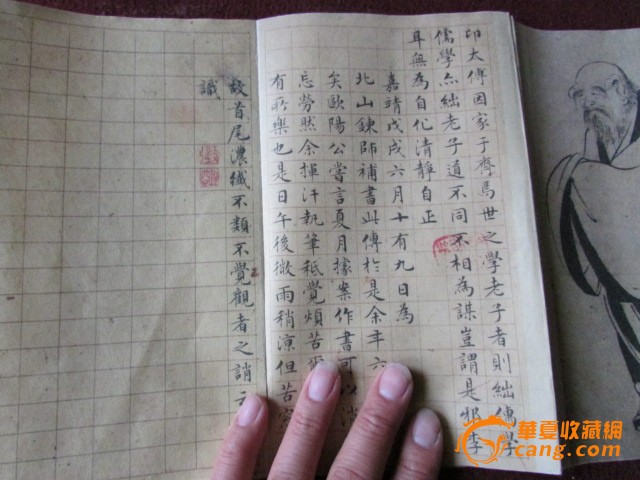 卬太傅因家于齊焉世之學老子者則絀儒學
儒學亦絀老子道不同不相為謀豈謂是邪李
耳無為自化清靜自正
嘉靖戊戌六月十有九日為
北山鍊師補書此傳於是余年六
矣歐陽公嘗言夏月據案作書可以消
忘勞然余揮汗執筆秖覺煩苦爾
有所樂也是日午後微雨稍涼但苦
故首尾濃纖不類不覺觀者之誚
識
華夏收藏網
cang.com